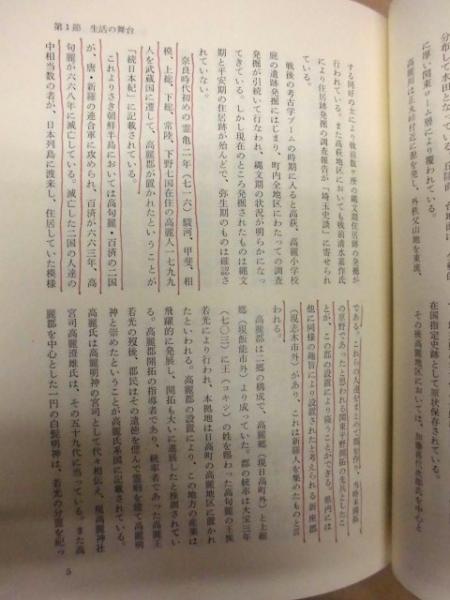 分布して水田となっている。
に厚い関東ローム層により覆われている。
高麗川は正丸峠付近に源を発し、外秩父山地を東流、
在国指定史跡として原状保存されている。
その後高麗地区においては、加藤喜代次郎氏を中心と
第1節 生活の舞台
する同好の士により戦前数ヶ所の縄文期住居跡の発掘が
行われている。また高萩地区においても戦前清水嘉作氏
により住居跡発掘の調査報告が「埼玉史談」に寄せられ
ている。
戦後の考古学ブームの時期に入ると高萩、高麗小学校
庭の遺跡発掘にはじまり、町内全地区にわたっての調査
発掘が引続いて行なわれ、縄文期の状況が明らかになっ
てきている。しかし現在のところ発掘されたものは縄文
期と平安期の住居跡が殆んどで、弥生期のものは確認さ
れていない。
奈良時代初めの霊亀二年(七一六)駿河、甲斐、相
模、上総、下総、常陸、下野七国在住の高麗人一七九九
人を武蔵国に遷して、高麗郡が置かれたということが
「続日本紀」に記載されている。
これよりさき朝鮮半島においては高句麗・百済の二国
が、唐・新羅の連合軍に攻められ、百済が六六三年、高
句麗が六六八年に滅亡している。滅亡した二国の人達の
中相当数の者が、日本列島に渡来し、住居していた模様
である。これらの人達をまとめて一郡を創り、当時未開拓
の原野であったと思われる関東平野開拓の先兵としたこ
とが、この郡の設置により窺うことができる。県内には
他に同様の趣旨により設置されたと考えられる新座郡
(現志木市外)があり、これは新羅人を集めたものと言
われる。
高麗郡は二郷の構成で、高麗郷(現日高町外)と上総
郷(現飯能市外)より成っていた。郡の統率は大宝三年
(七〇三)に王(コキシ)の姓を賜わった高句麗の王族
若光により行われ、本拠地は日高町の高麗地区に置かれ
た。高麗郡の設置により、この地方の産業は
飛躍的に発展し、開拓も大いに進展したと推測されてい
る。高麗郡開拓の指導者であり、統率者であった高麗王
若光の歿後、郡民はその遺徳を偲んで霊廟を建て高麗明
神と崇めたということが高麗氏系図に記載されている。
高麗氏は高麗明神の宮司として代々相伝え、現高麗神社
宮司高麗澄雄氏は、その五十九代に当っている。また高
麗郡を中心とした一円の白髭明神は、若光の分霊を祀っ
5